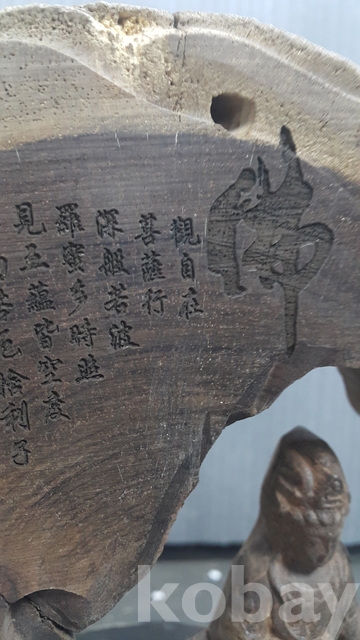 佛
觀自在
菩薩行
深般若波
羅蜜多時照
見五蘊皆空度
苦厄舍利子
kobay